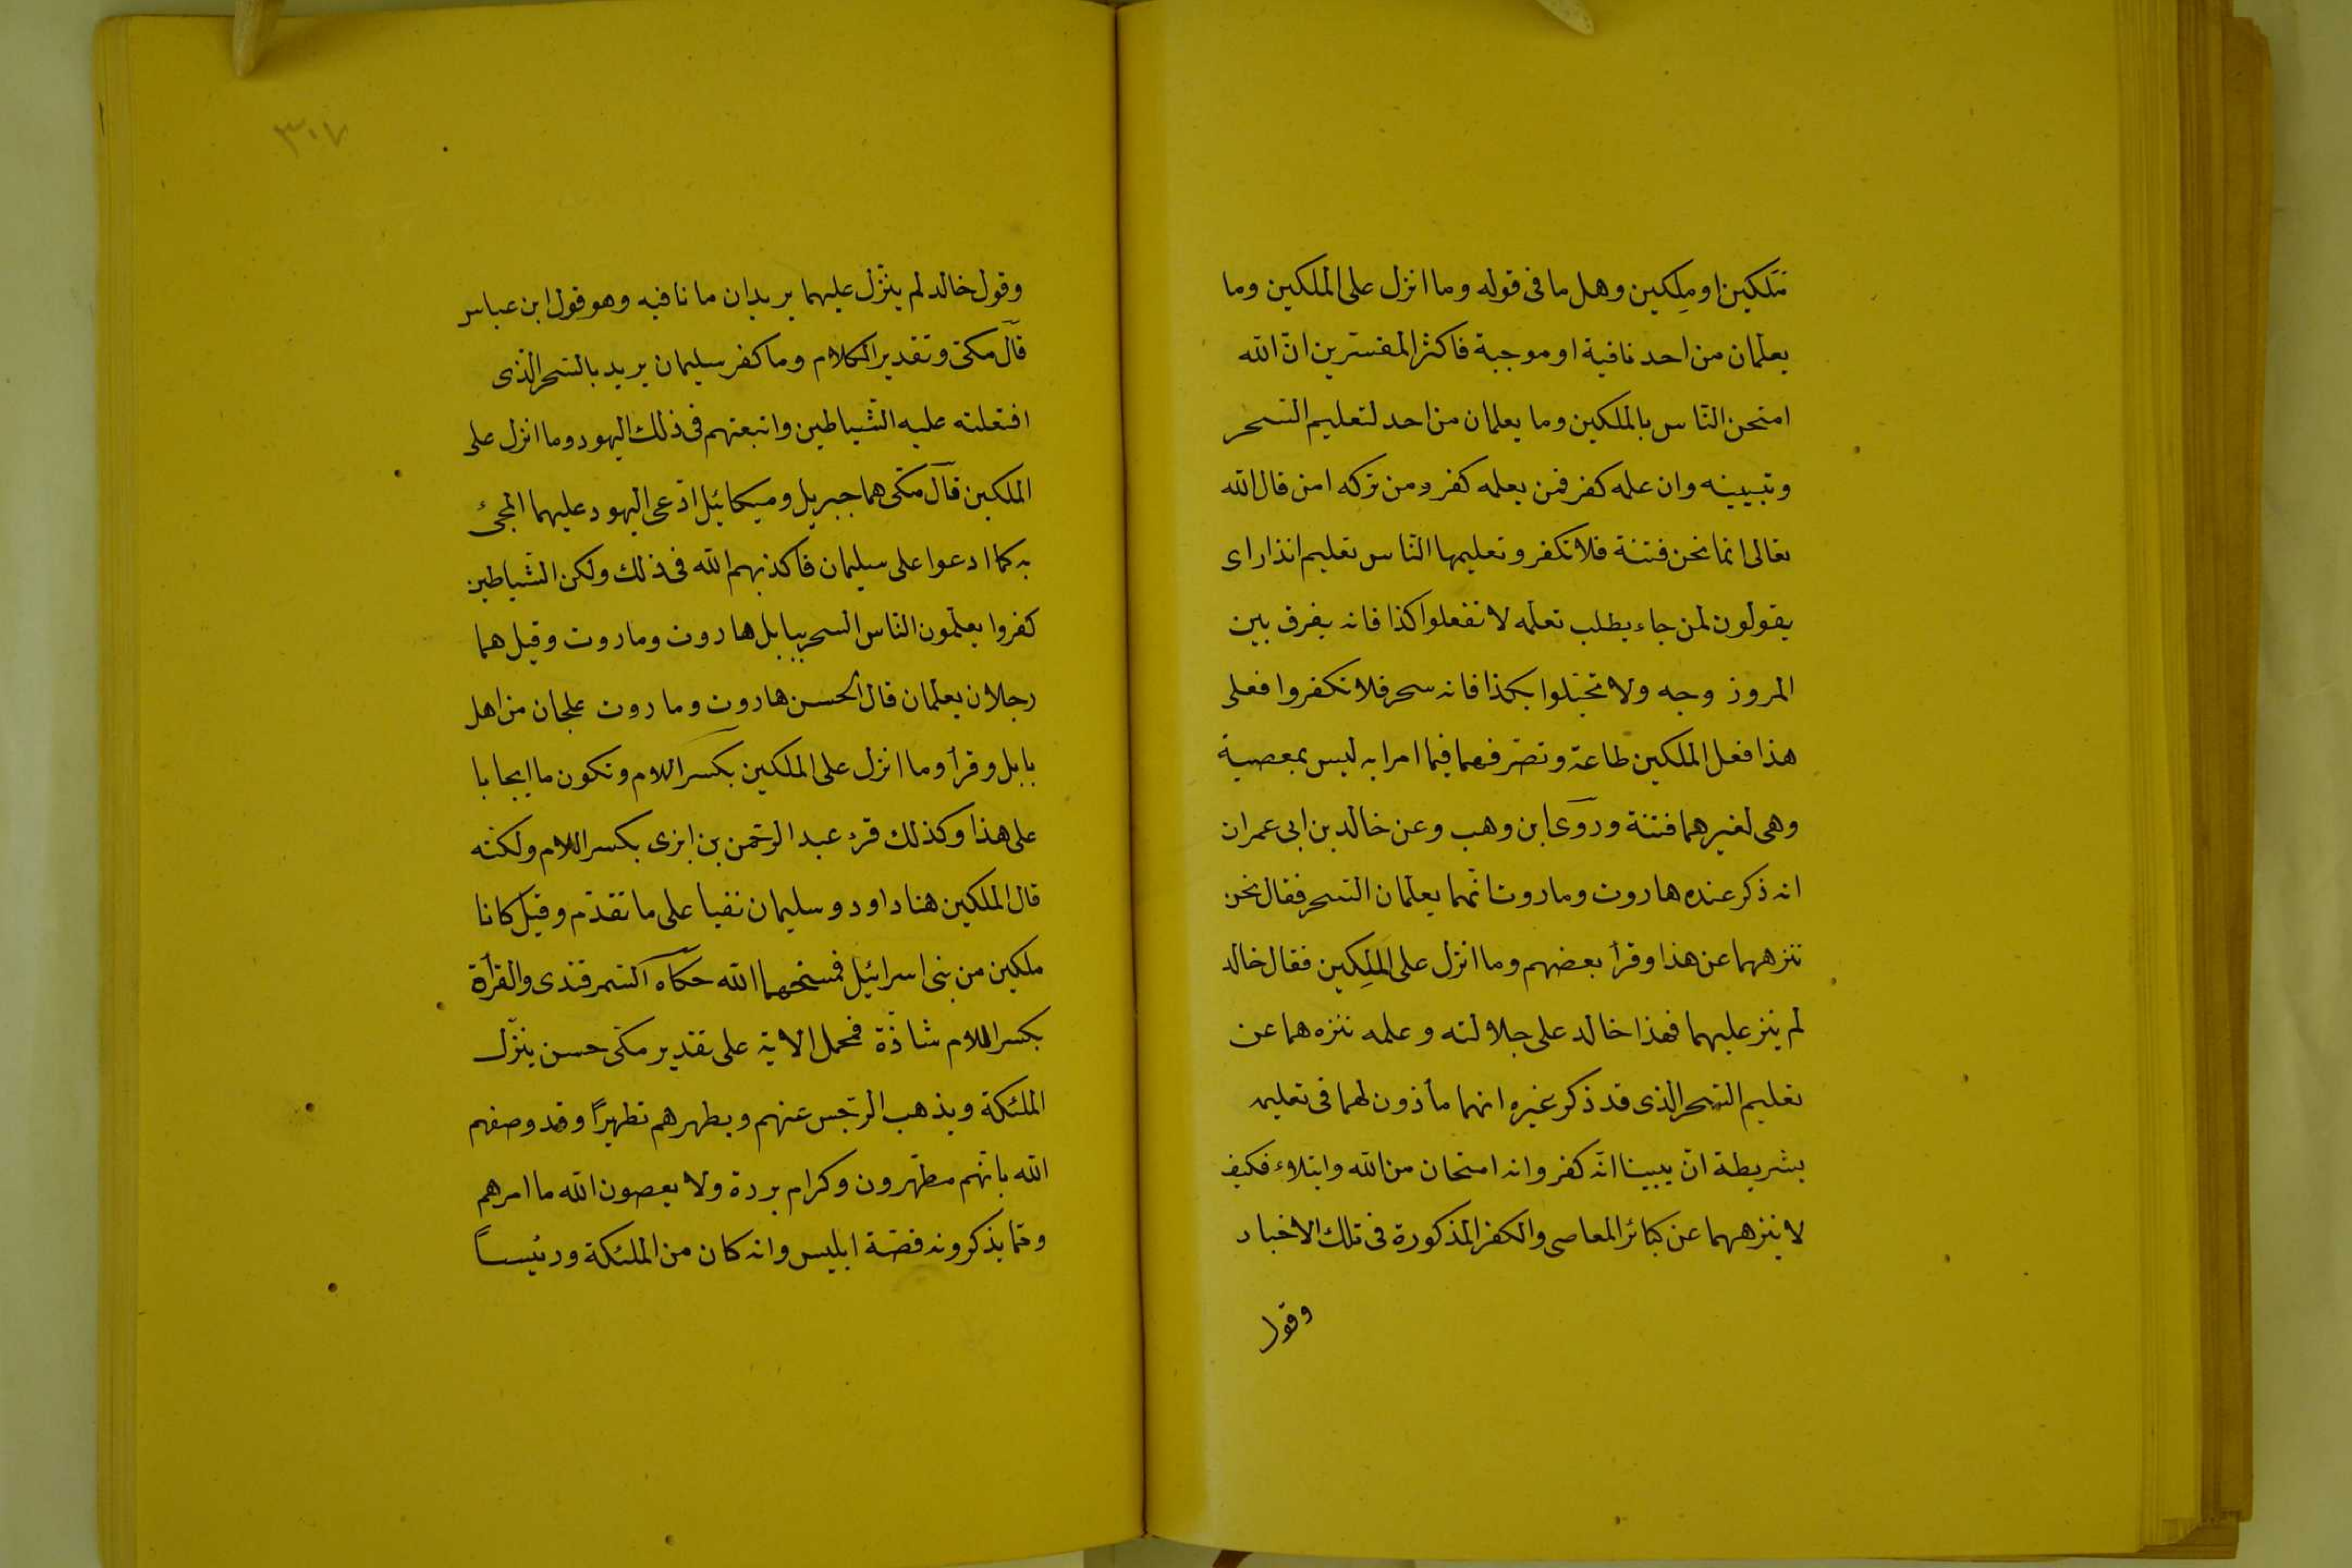 مَلَكين او مِلكين وهل ما فى قوله وما انزل على الملكين وما
يعلّمان من احد نافية او موجبة فاكثر المفسّرين انّ الله
امتحن النّاس بالملكين وما يعلمان من احد لتعليم السّحر
وتبيينه وان علمه كفر فمن يعلمه كفر ومن تركه امن قال الله
تعالى انما نحن فتنة فلا تكفر وتعليمها النّاس تعليم انذار اى
يقولون لمن جاء يطلب تعلّمه لا تفعلوا كذا فانه يفرق بين
المرو زوجه ولا تختلوا بكذا فانه سحر فلا تكفروا فعلى
هذا فعل الملكين طاعة وتصرّفهما فيما امرا به ليس بمعصية
وهى لغيرهما فتنة وروى ابن وهب وعن خالد بن ابى عمران
انه ذكر عنده هاروت وماروت انّهما يعلّمان السّحر فقال نحن
ننزههما عن هذا وقرأ بعضهم وما انزل على المَلِكين فقال خالد
لم ينز عليهما فهذا خالد على جلالته وعلمه نزه هما عن
تعليم السّحر الذى قد ذكر غيره انهما مأذون لهما فى تعليمه
بشريطة انّ يبينا انّه كفر وانه امتحان من الله وابتلاء فكيف
لا ينزههما عن كبائر المعاصى والكفر المذكورة فى تلك الاخبار
وقول
٣٠٧
وقول خالد لم ينزّل عليهما يريد ان ما نافيه وهو قول ابن عباس
قال مكّى وتقدير الكلام وما كفر سليمان يريد بالسّحر الّذى
افتعلته عليه الشّياطين واتبعتهم فى ذلك اليهود وما انزل على
الملكين قال مكّى هما جبريل وميكائيل ادّعى اليهود عليهما المجئ
به كما ادعوا على سليمان فاكذبهم الله فى ذلك ولكن الشّياطين
كفروا يعلّمون النّاس السحر ببابل هاروت وماروت وقيل هما
رجلان يعلّمان قال الحسن هاروت وماروت علجان من اهل
بابل وقرأ وما انزل على الملكين بكسر اللام وتكون ما ايجابا
على هذا وكذلك قرء عبد الرّحمن بن ابزى بكسر اللام ولكنّه
قال الملكين هنا داود وسليمان نفيا على ما تقدّم وقيل كانا
ملكين من بنى اسرائيل فمسخهما الله حكاه السّمرقندى والقرأة
بكسر اللام شاذّة فمحمل الاية على تقدير مكّى حسن ينزّل
الملئكة ويذهب الرّجس عنهم ويطهرهم تطهيرًا وقد وصفهم
الله بانّهم مطهّرون وكرام بررة ولا يعصون الله ما امرهم
وممّا يذكرونه قصّة ابليس وانه كان من الملئكة ورئيسًا